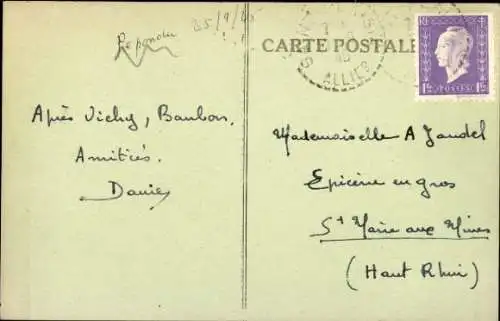 Répondu 25/9/45
CARTE POSTALE
ALLIER
RF
1F50 POSTES 1F50
Après Vichy, Bourbon.
Amitiés.
Mademoiselle A Jaudel
Epicerie en gros
St Marie aux Mines
(Haut Rhin)